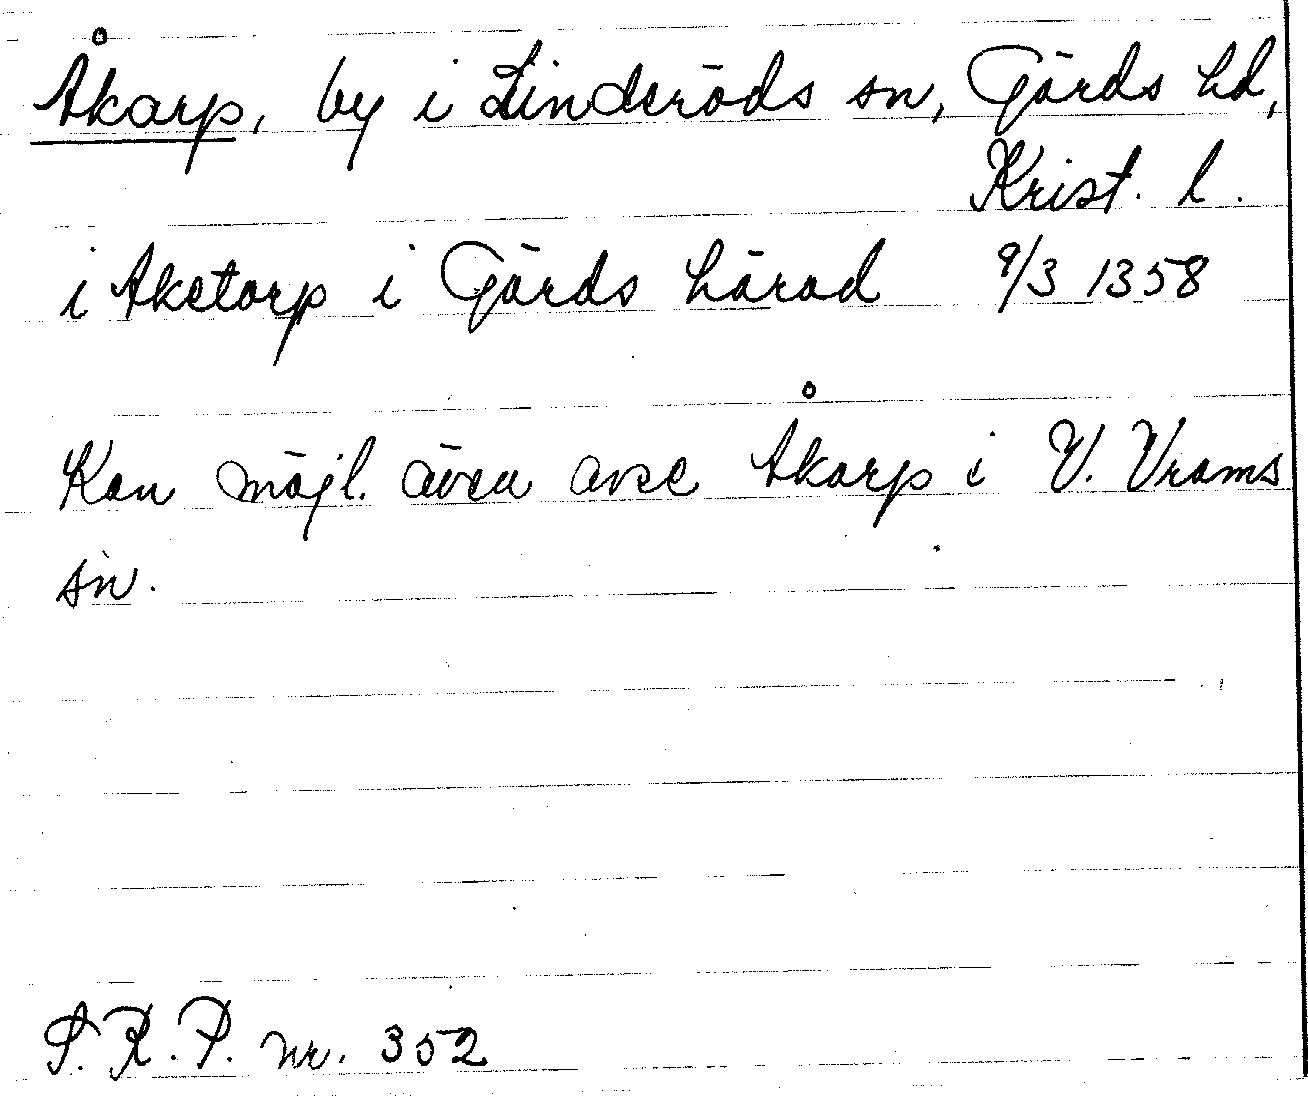 Åkarp, by i Linderöds sn, Gärds hd,
Krist. l.
i Aketorp i Gärds härad 9/3 1358
Kan möjl. även avse Åkarp i V. Vrams
sn.
S.R.P. nr. 352